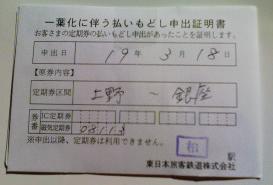 一葉化に伴う払いもどし申出証明書
お客さまの定期券の払いもどし申出があったことを証明します。
申出日 19年 3月 18日
【原券内容】
定期券区間 上野 ~ 銀座
券番 IC定期券
磁気定期券 08113
※申出以降、定期券は利用できません。
柏 駅
東日本旅客鉄道株式会社